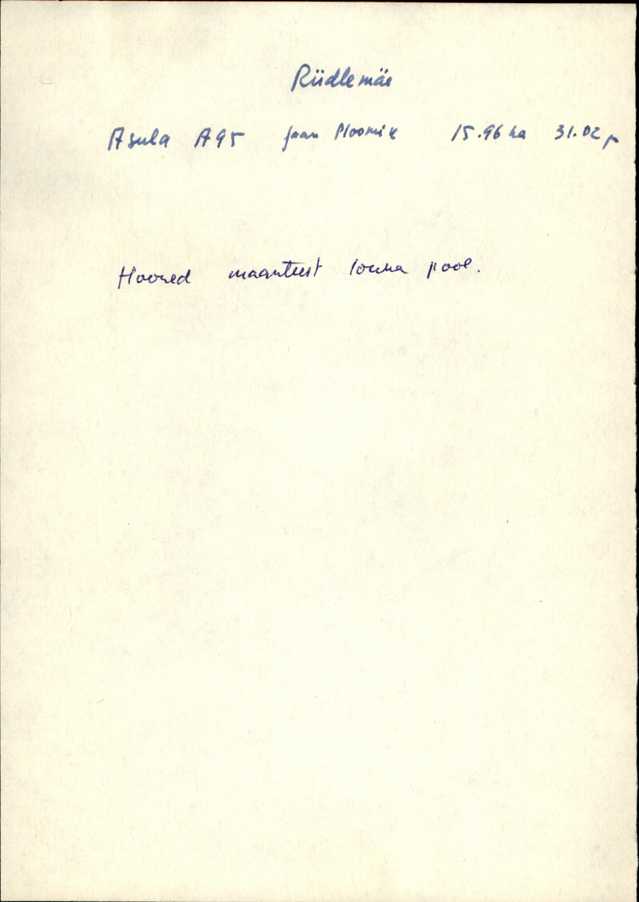 Riidlemäe
Asula A95 Jaan Ploomik 15.96 ha 31.02 p
Hooned maanteest lõuna pool.